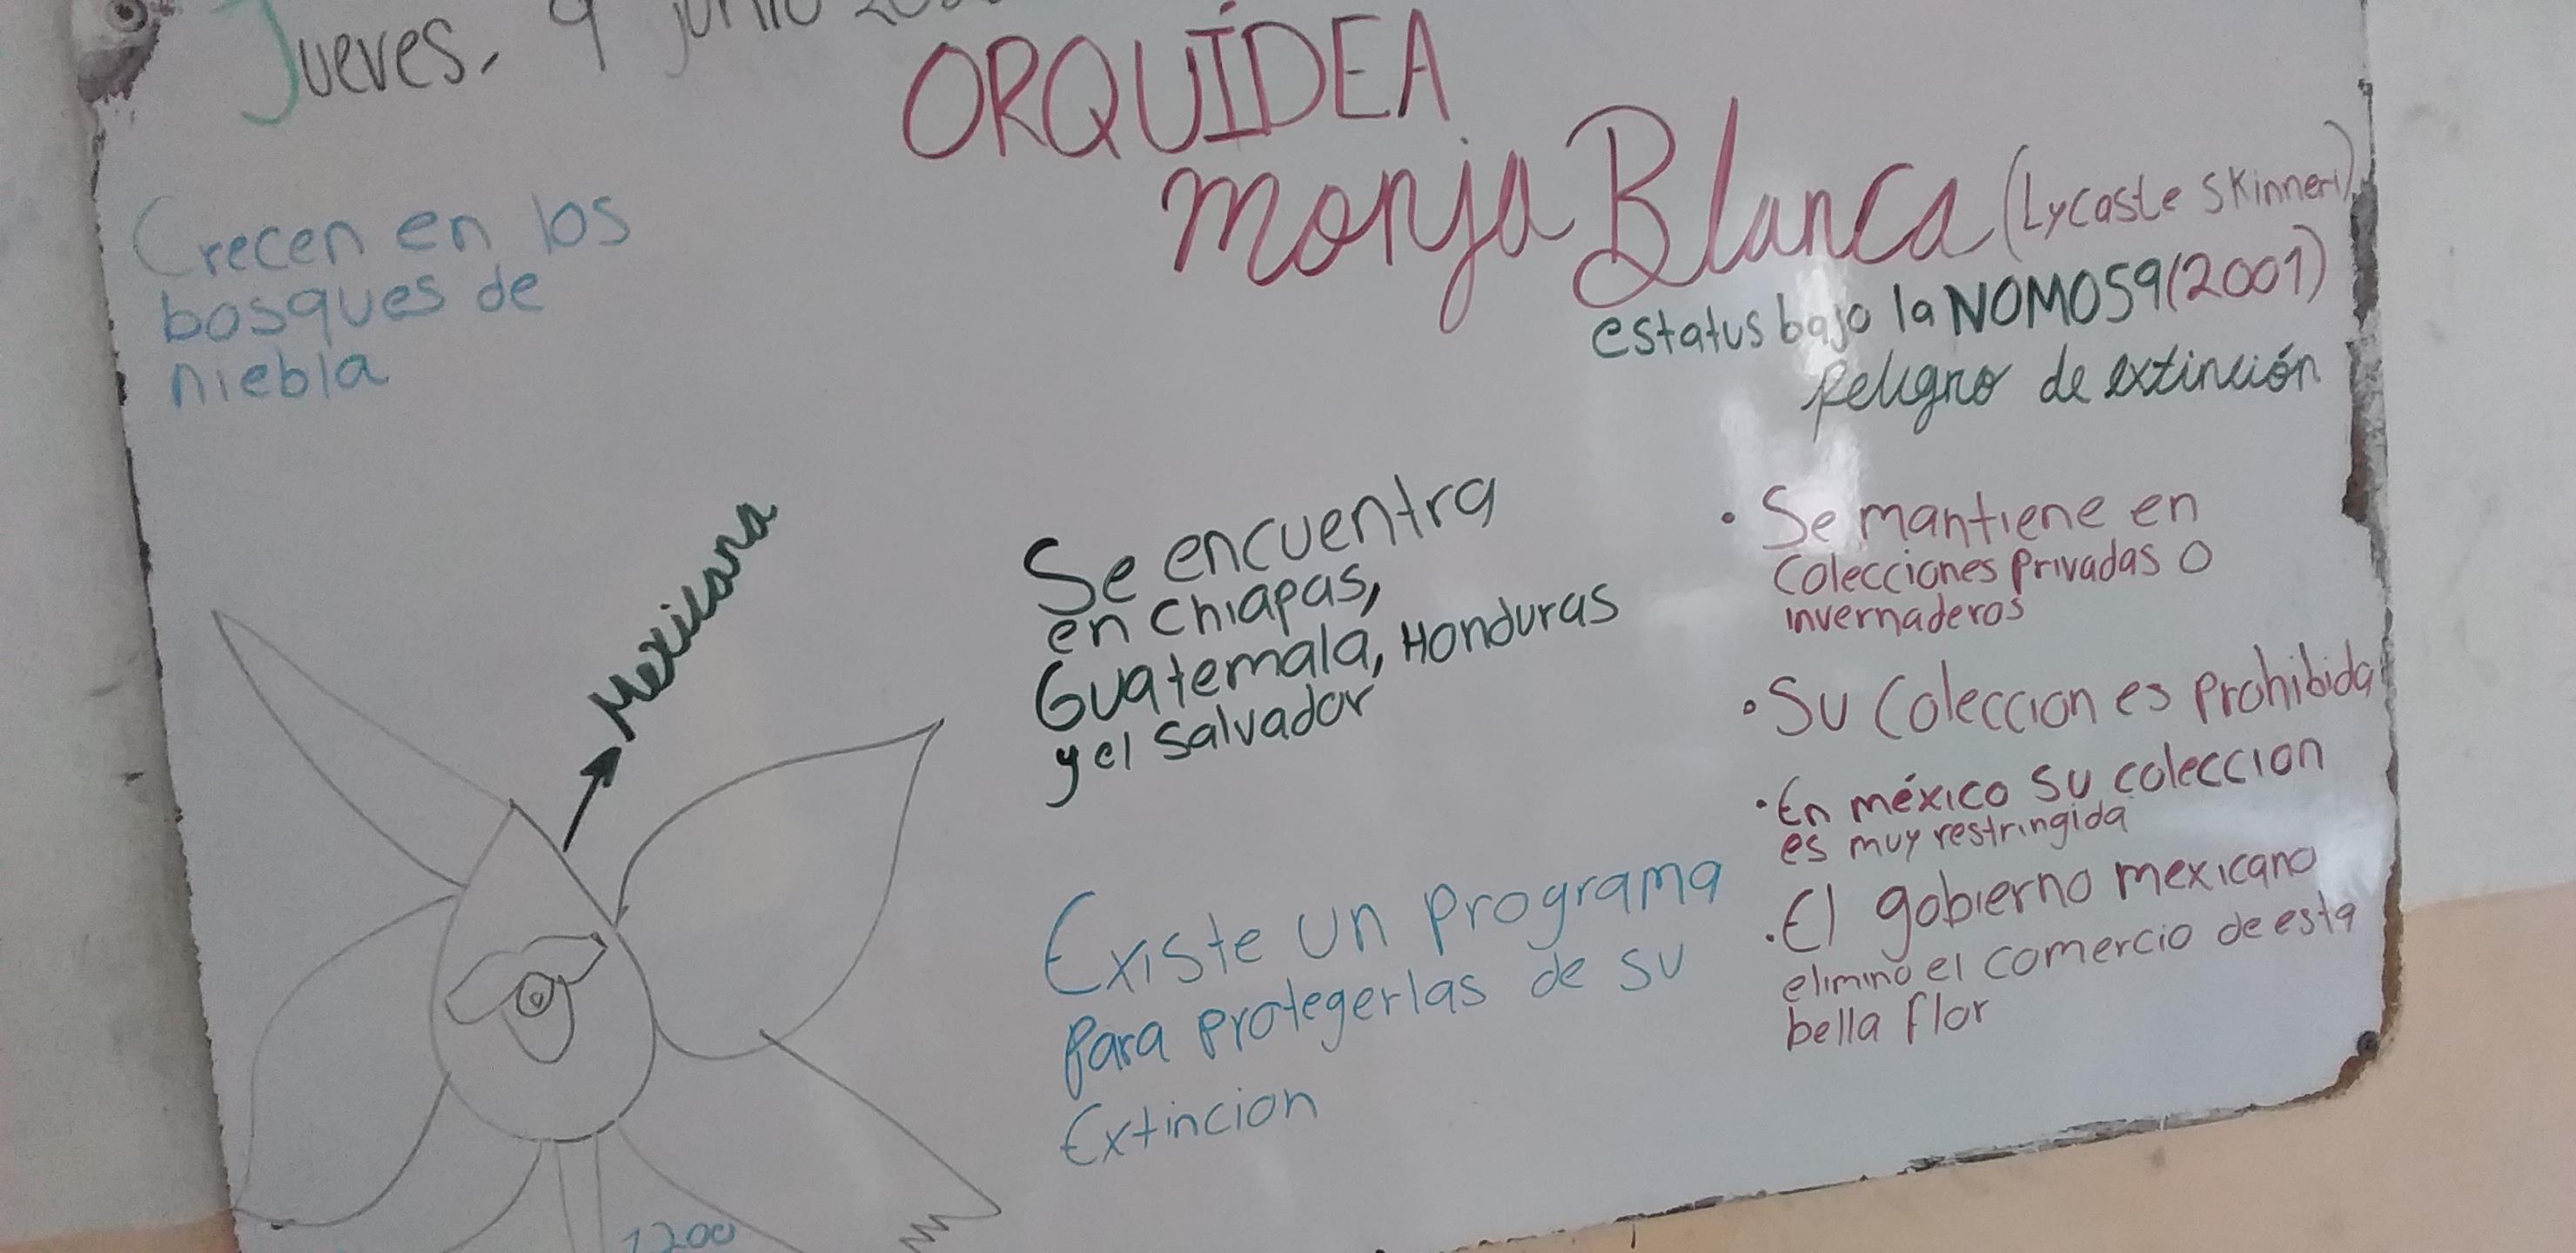 Jueves, 9 junio
ORQUÍDEA
Monja Blanca (Lycaste Skinneri)
estatus bajo la NOM059(2001)
peligro de extinción
Crecen en los
bosques de
niebla
Mexicana
Se encuentra
en Chiapas,
Guatemala, Honduras
y el Salvador
Existe un programa
para protegerlas de su
Extincion
• Se mantiene en
Colecciones privadas o
invernaderos
• Su Coleccion es prohibida
• En méxico su coleccion
es muy restringida
• El gobierno mexicano
elimino el comercio de esta
bella flor
1200